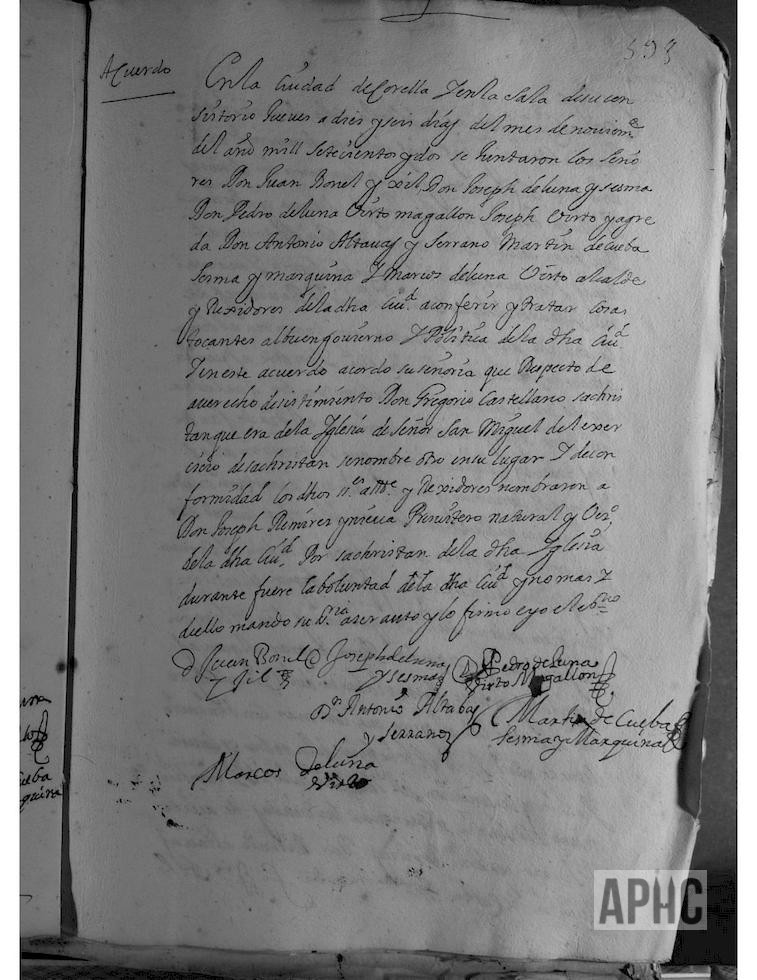 593
Acuerdo
En la Ciudad de Corella Y en la Sala desu con
sistorio Jueves a dies y seis dias del mes de noviem.e
del año mill setecientos y dos se Juntaron los Seño
res Don Juan Bonel y xil, Don Joseph de luna y sesma
Don Pedro de luna Virto magallon Joseph Virto y agre
da Don Antonio Altauas y Serrano Martin de Cueba
sesma y marquina Y Marcos de luna Virto alcalde
y Rexidores dela dha Ciu.d a conferir y tratar Cosas
tocantes al buen gouierno Y Politica de la dha Ciu.d
Y en este acuerdo acordo su señoria que Respecto de
auer echo desistimiento Don Gregorio Castellano sachris
tan que era dela Iglesia de señor San Miguel del exer
cicio de sachristan se nombre otro en su lugar Y de con
formidad los dhos ss.es alcde y Rexidores nombraron a
Don Joseph Remires Presuitero natural y Vez.o
dela dha Ciu.d Por sachristan dela dha Iglesia
durante fuere la boluntad de la dha Ciu.d y no mas Y
dello mando su S.ria aser auto y lo firmo e yo el esb.no
D Juan Bonel
Y Jil
D Joseph de luna
y sesma
D Pedro de luna
Virto Magallon
Dn Antonio Altabas
y Serrano
Martin de Cueba
Sesma y Marquina
Marcos de luna
Virto
ueba
APHC